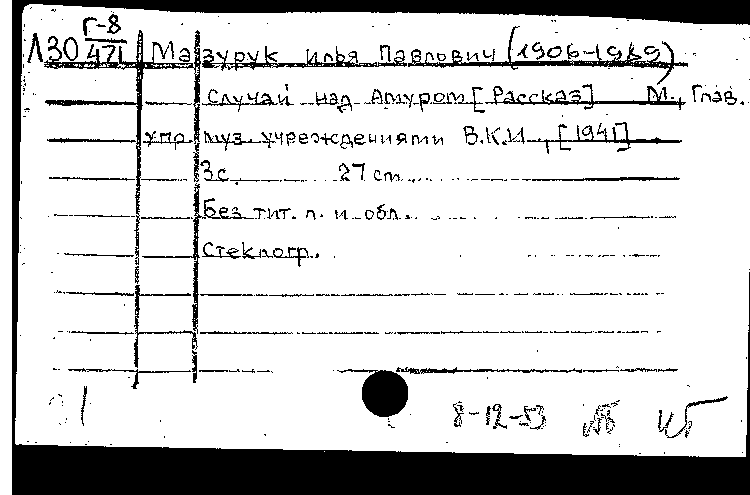 Г-8
Л30 471 Мазурук Илья Павлович (1906-1989)
Случай над Амуром [Рассказ] М., Глав.
упр. муз. учреждениями В.К.И., [1941]
3с. 27 cm.
Без тит. л. и обл.
Стеклогр.
8-12-53